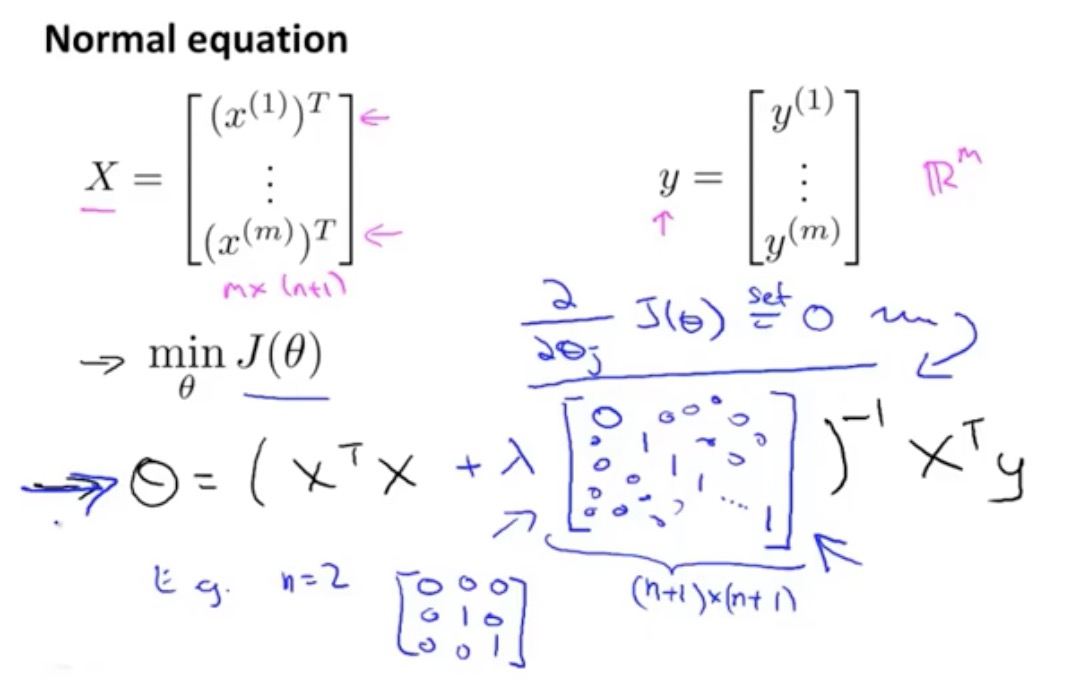 Normal equation
X = [ (x^(1))^T ⋮ (x^(m))^T ] ← ←
m x (n+1)
y = [ y^(1) ⋮ y^(m) ] ℝ^m
↑
∂/∂θ_j J(θ) set = 0
→ min_θ J(θ)
→ θ = ( X^T X + λ [ 0 1 1 1 ..... 1 ] )^-1 X^T y
(n+1)x(n+1)
E.g. n=2 [ 0 0 0
0 1 0
0 0 1 ]